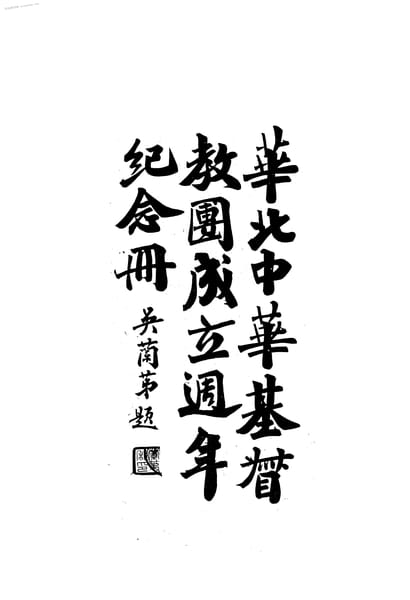 華北中華基督
教團成立週年
紀念冊
吳蘭第題